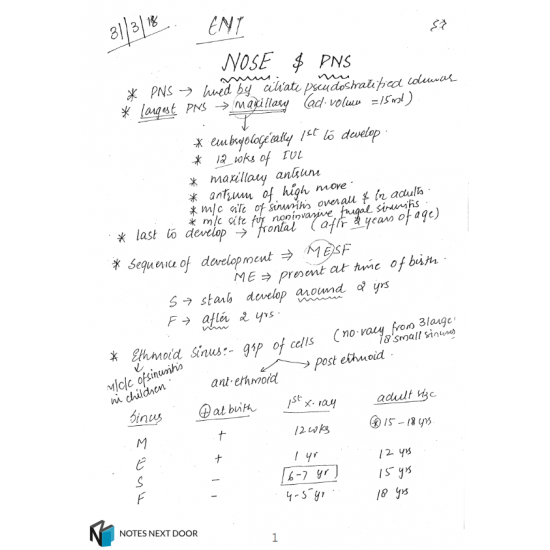 31/3/18 ENT 57
NOSE & PNS
* PNS → lined by ciliate pseudostratified columnar
* Largest PNS → maxillary (ad. volume = 15ml)
* embryologically 1st to develop.
* 12 wks of IUL
* maxillary antrum
* antrum of high more.
* m/c site of sinusitis overall & in adults.
* m/c site for noninvasive fungal sinusitis
* last to develop → frontal (aftr 2 years of age)
* Sequence of development ⇒ MESF
ME ⇒ present at time of birth.
S → starts develop around 2 yrs
F → after 2 yrs.
* Ethmoid Sinus:- grp of cells (no. vary from 3 large
18 small sinuses
M/C/C of sinusitis in children
ant. ethmoid post ethmoid.
Sinus ⊕ at birth 1st x-ray adult size
M + 12 wks 15-18 yrs
E + 1 yr 12 yrs
S - 6-7 yr 15 yrs
F - 4-5 yr 18 yrs
NOTES NEXT DOOR
1